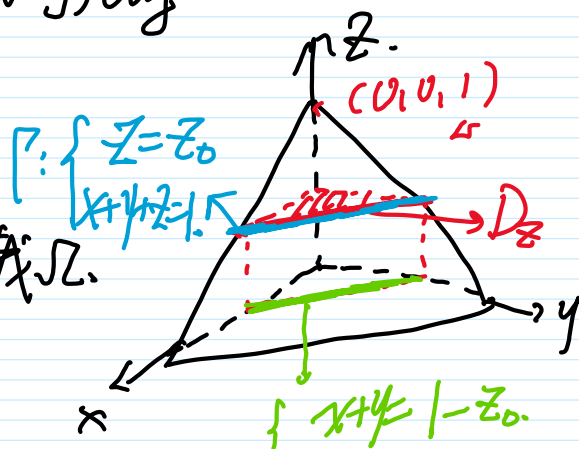 Z.
(0,0,1)
Γ: { Z=Z₀
x+y+z=1.
D_z
Ω.
y
x
{ x+y=1-Z₀.